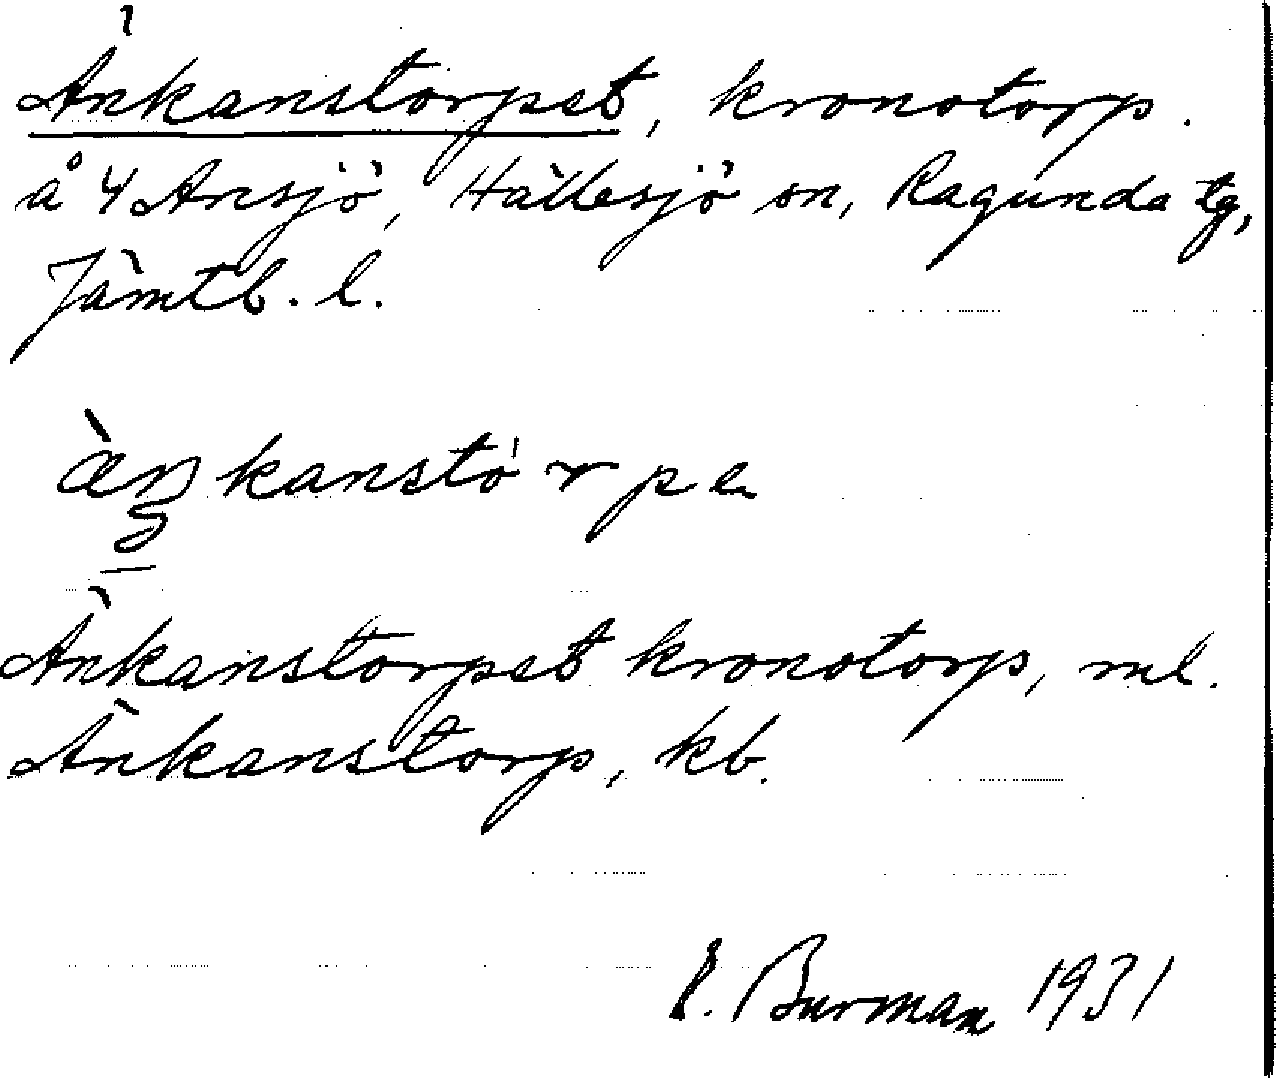 Änkanstorpet, kronotorp.
å 4 Ansjö, Hällesjö sn, Ragunda tg,
Jämtl. l.
æ̀ŋkanstó r p e
Änkanstorpet kronotorp, ml.
Änkanstorp, kb.
E. Burman 1931